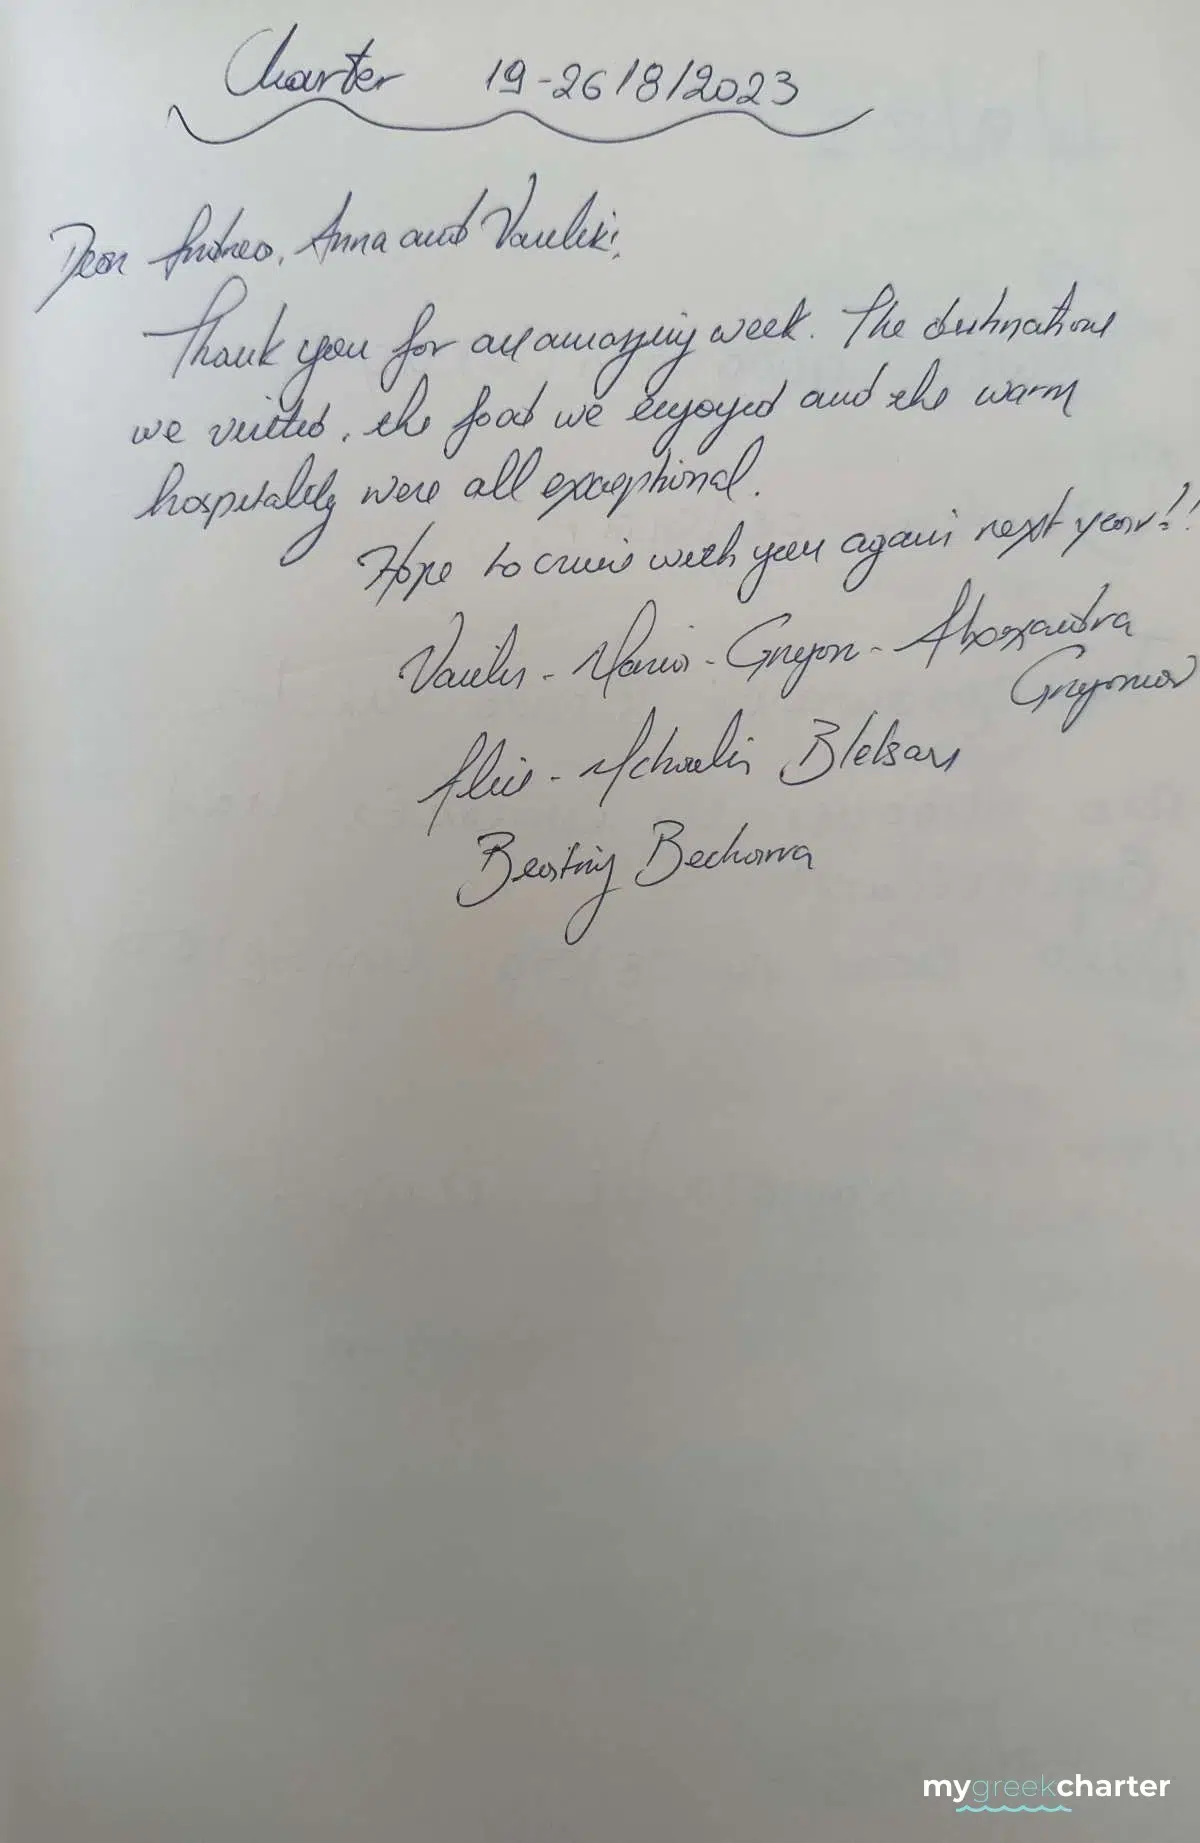 Charter 19-26/8/2023
Dear Andrea, Anna and Vasiliki,
Thank you for an amazing week. The destinations
we visited, the food we enjoyed and the warm
hospitality were all exceptional.
Hope to cruise with you again next year!!
Vasilis - Maria - Grigoris - Alexandra
Alice - Michailis Bletsas
Bechara
mygreekcharter